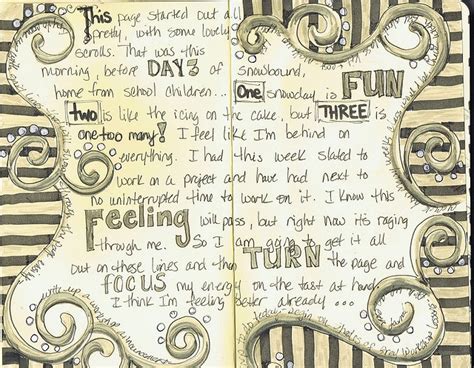 This page started out all
pretty, with some lovely
scrolls. That was this
morning, before DAY 3 of snowbound,
home from school children... One snowday is FUN
two is like the icing on the cake, but THREE is
one too many! I feel like I'm behind on
everything. I had this week slated to
work on a project and have had next to
no uninterrupted time to work on it. I know this
Feeling will pass, but right now it's raging
through me. So I am going to get it all
out on these lines and then TURN the page and
FOCUS my energy on the task at hand.
I think I'm feeling better already...